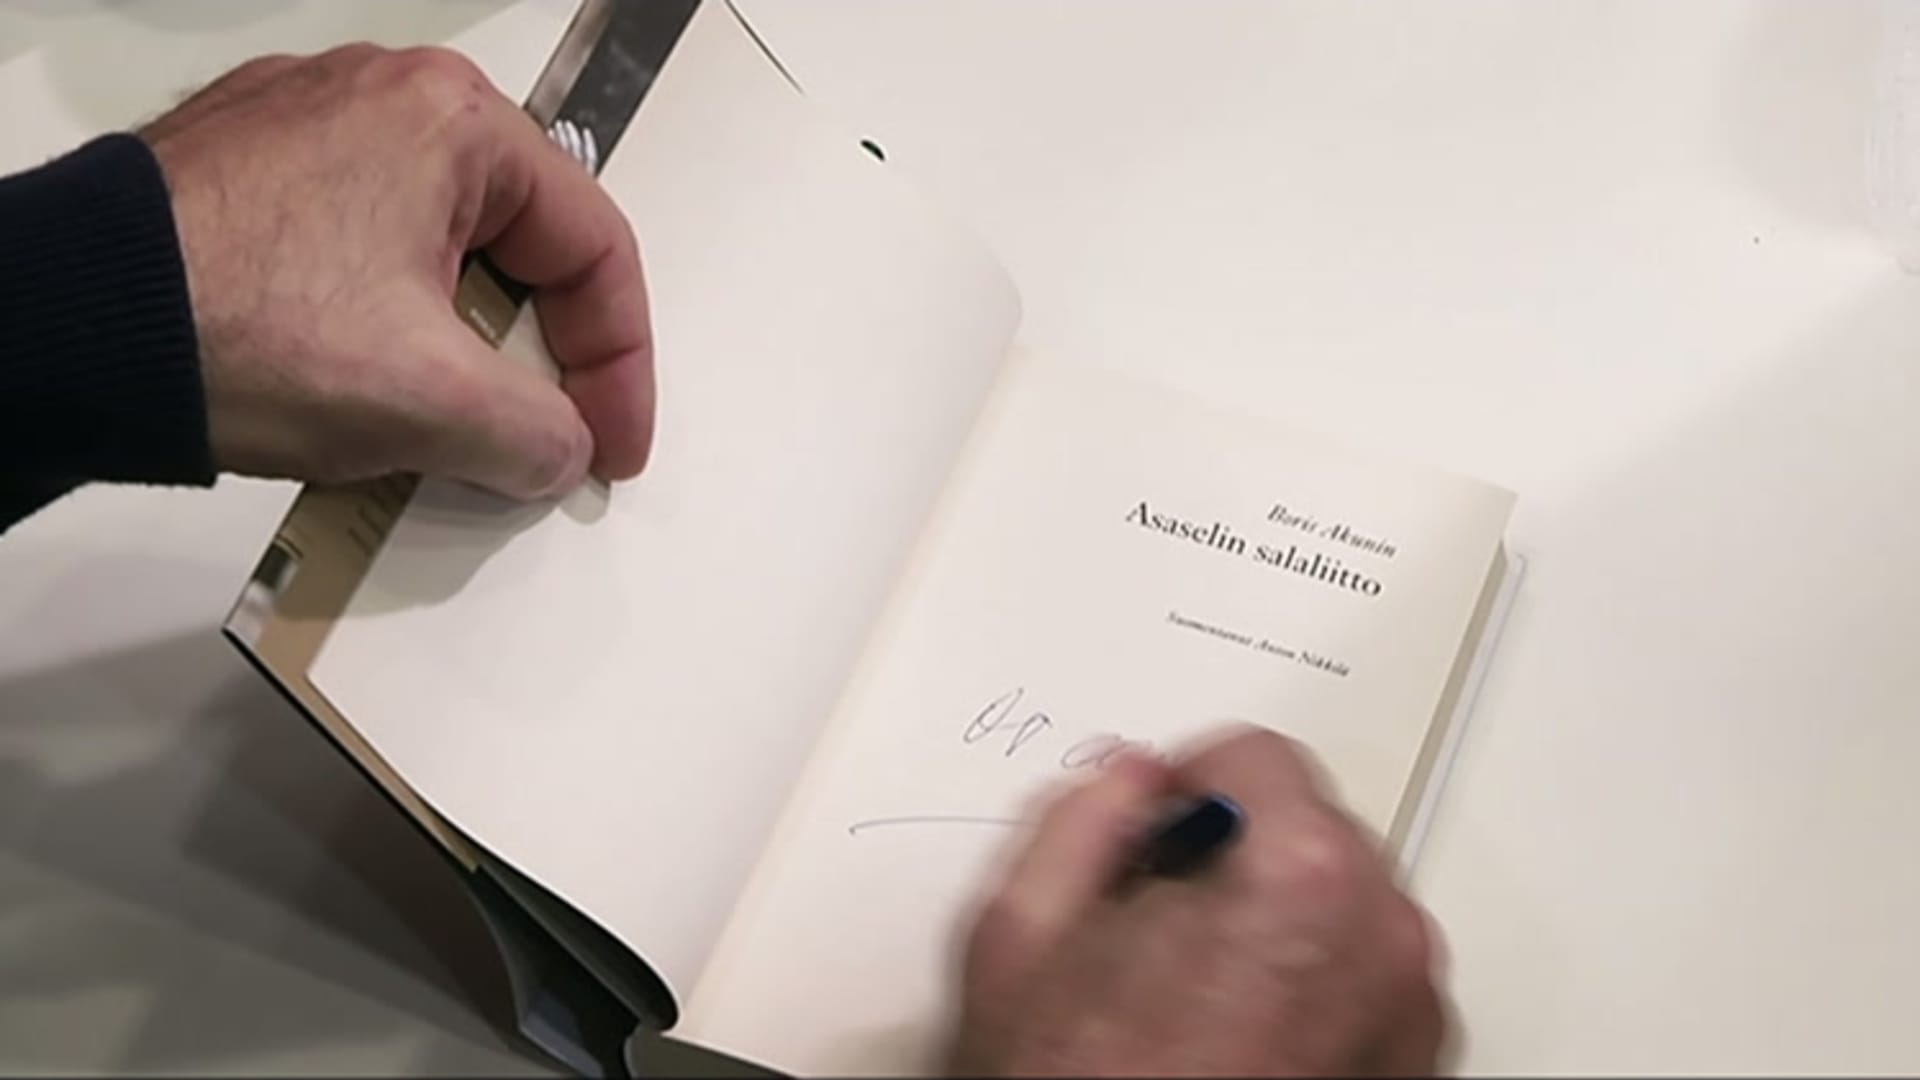 Boris Akunin
Asaselin salaliitto
Suomentanut Anton Nikkilä
От